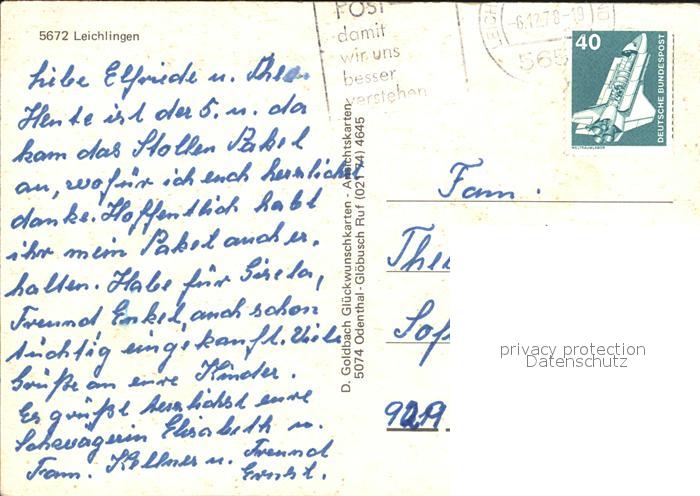 5672 Leichlingen
POST
damit
wir uns
besser
verstehen
-6.12.78-19
565
40
DEUTSCHE BUNDESPOST
WELTRAUMLABOR
Liebe Elfriede u. Theo
Heute ist der 5. u. da
kam das Stollen Paket
an, wofür ich euch herzlichst
danke. Hoffentlich habt
ihr mein Paket auch er-
halten. Habe für Gisela,
Freund, Enkel, auch schon
tüchtig eingekauft. Viele
Grüße an eure Kinder.
Es grüßt herzlichst eure
Schwägerin Elisabeth u.
Fam. Kellner u. Freund
Ernst.
D. Goldbach Glückwunschkarten - Ansichtskarten
5074 Odenthal-Glöbusch Ruf (02174) 4645
Fam.
The
Sof
privacy protection
Datenschutz